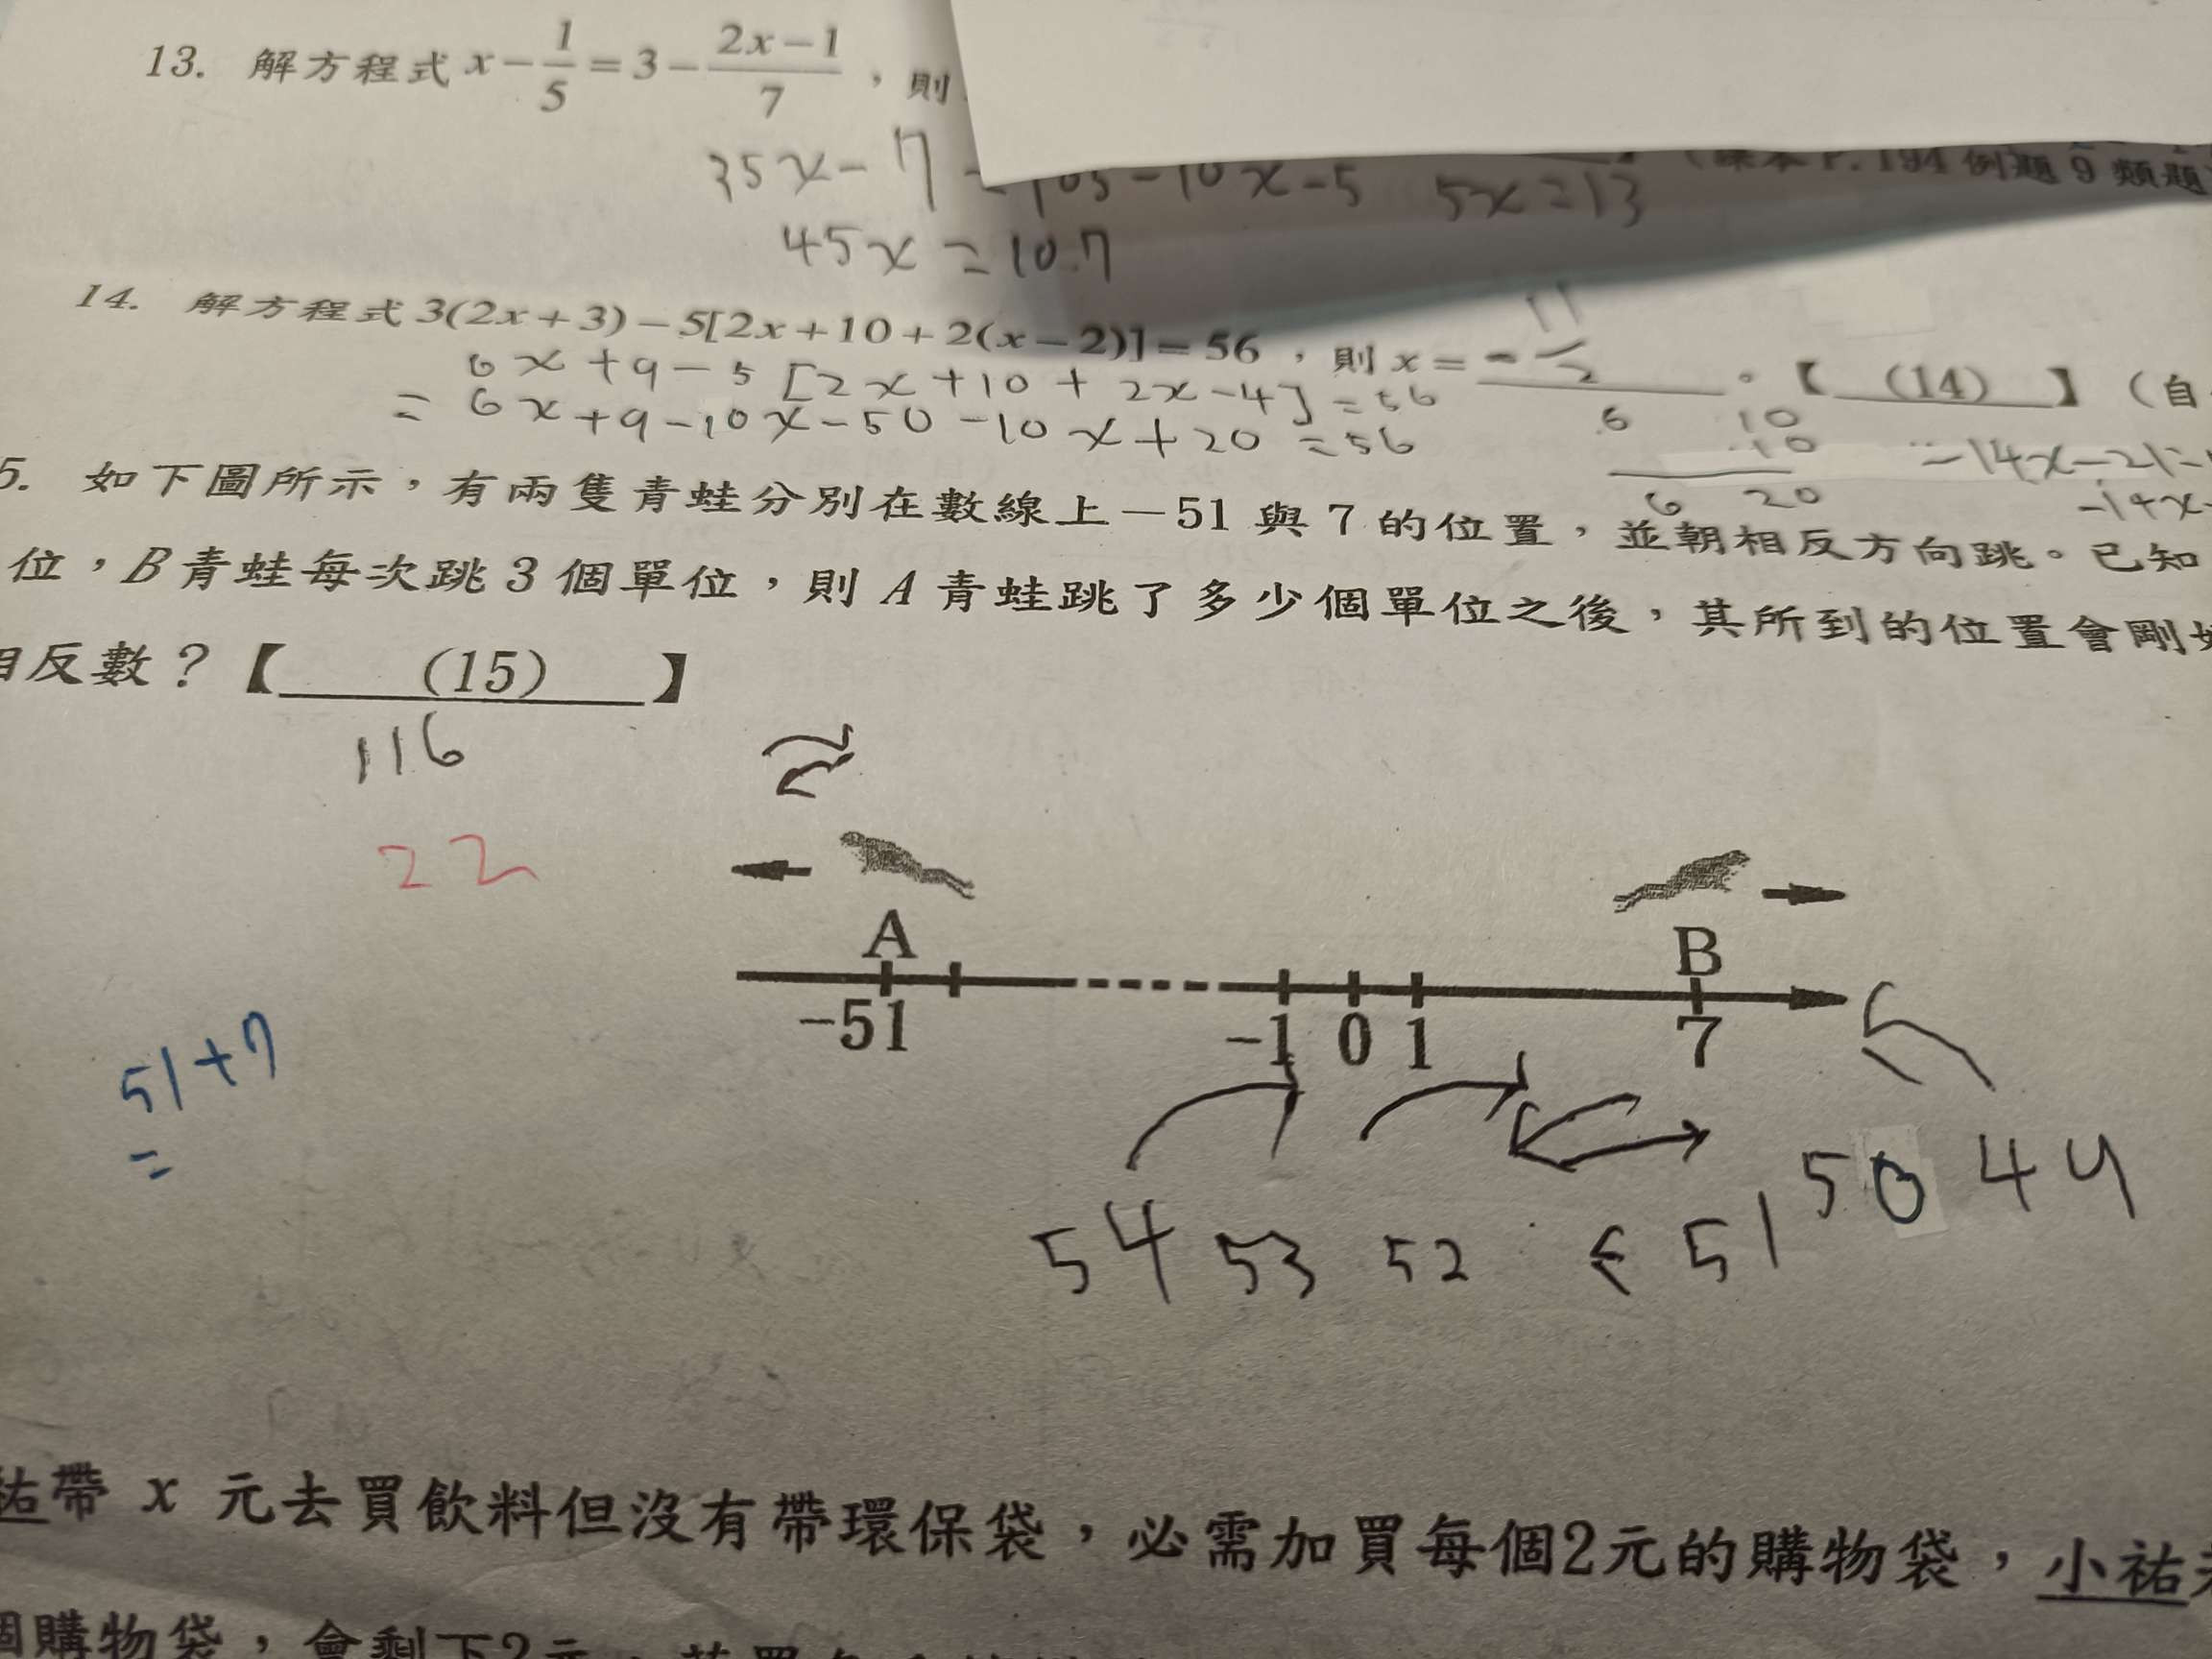 13. 解方程式 x − 1/5 = 3 − (2x−1)/7，則
35x − 7 = 105 − 10x − 5 5x = 13
P.194 例題 9 類題
45x = 107
14. 解方程式 3(2x+3)−5[2x+10+2(x−2)]=56，則 x = − 11/2 。【 (14) 】（自
6x+9−5[2x+10+2x−4]=56
= 6x+9−10x−50−10x+20=56
6 10
10
6 20
=−14x−21=
−14x
5. 如下圖所示，有兩隻青蛙分別在數線上−51 與 7 的位置，並朝相反方向跳。已知
位，B 青蛙每次跳 3 個單位，則 A 青蛙跳了多少個單位之後，其所到的位置會剛
反數？【 (15) 】
116
22
A B
−51 −1 0 1 7
51+7
=
54 53 52 51 50 44
祐帶 x 元去買飲料但沒有帶環保袋，必需加買每個2元的購物袋，小祐
個購物袋，會剩下2元，